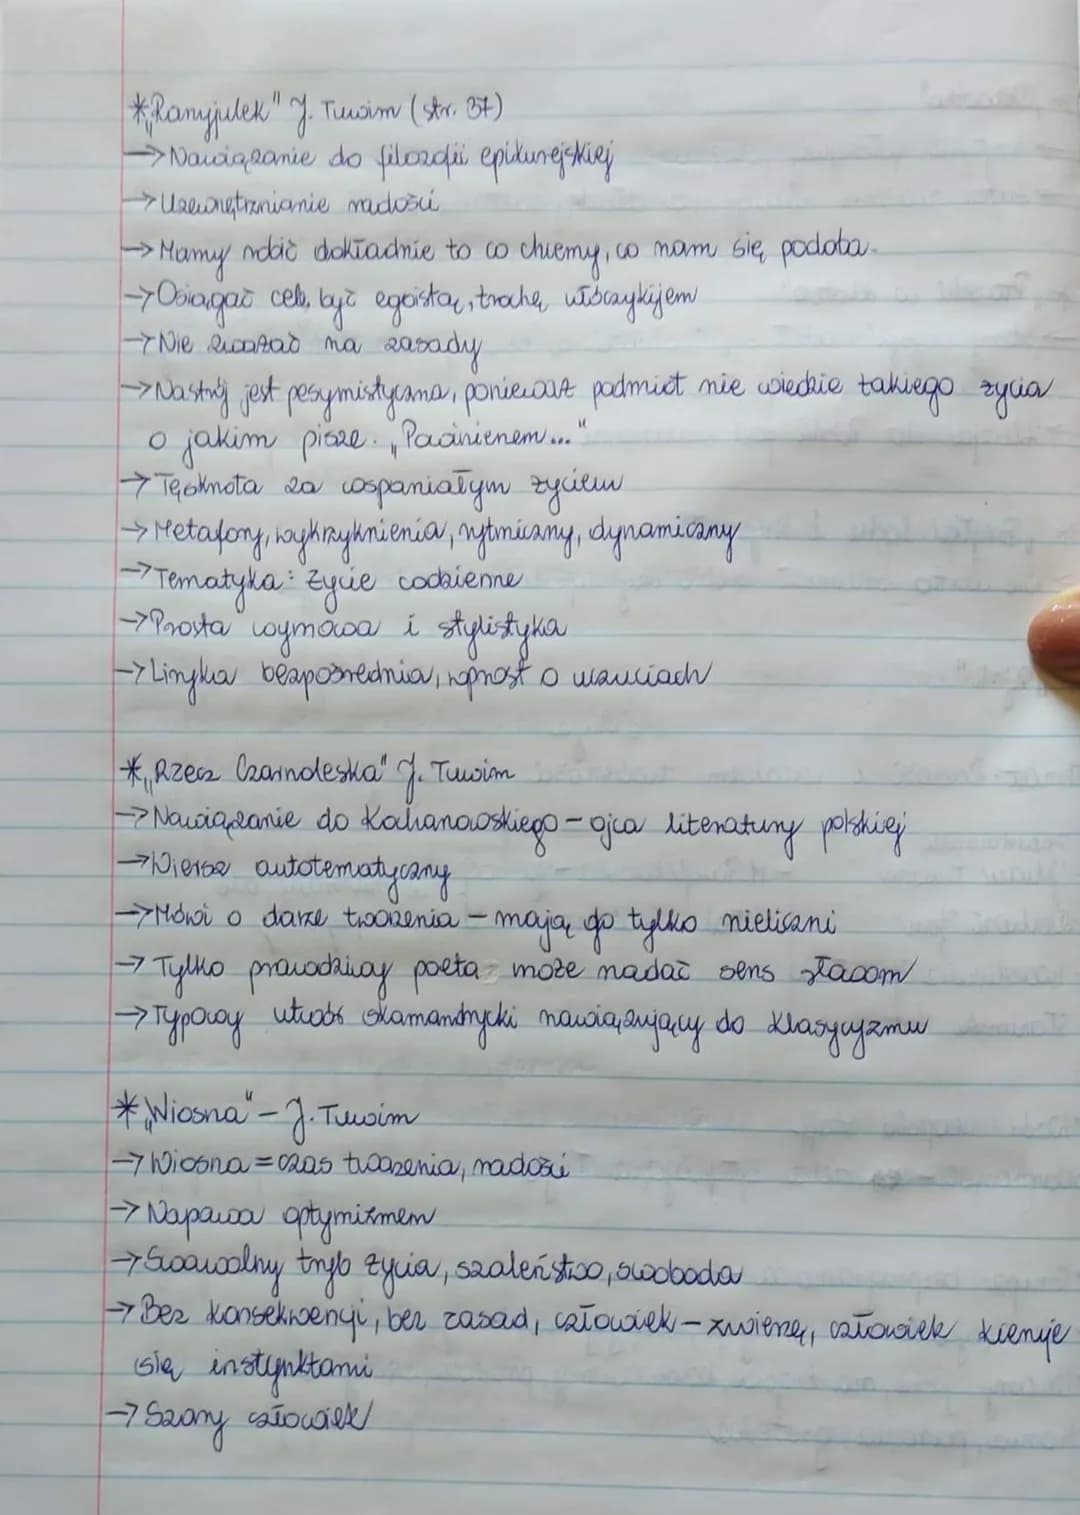 * „Ranyjulek" J. Tuwim (str. 37)
→ Nawiązanie do filozofii epikurejskiej
→ Uzewnętrznianie radości
→ Mamy robić dokładnie to co chcemy, co nam się podoba.
→ Osiągać cele, być egoistą, trochę włóczykijem
→ Nie zważać na zasady
→ Nastrój jest pesymistyczna, ponieważ podmiot nie wiedzie takiego życia
o jakim pisze. „Powinienem..."
→ Tęsknota za wspaniałym życiem
→ Metafory, wykrzyknienia, rytmiczny, dynamiczny
→ Tematyka: życie codzienne
→ Prosta wymowa i stylistyka
→ Liryka bezpośrednia, wprost o uczuciach
* „Rzecz Czarnoleska" J. Tuwim
→ Nawiązanie do Kochanowskiego - ojca literatury polskiej
→ Wiersz autotematyczny
→ Mówi o darze tworzenia - mają go tylko nieliczni
→ Tylko prawdziwy poeta może nadać sens słowom
→ Typowy utwór skamandrycki nawiązujący do klasycyzmu
* „Wiosna" - J. Tuwim
→ Wiosna = czas tworzenia, radości
→ Napawa optymizmem
→ Swawolny tryb życia, szaleństwo, swoboda
→ Bez konsekwencji, bez zasad, człowiek - zwierzę, człowiek kieruje
się instynktami
→ Szary człowiek